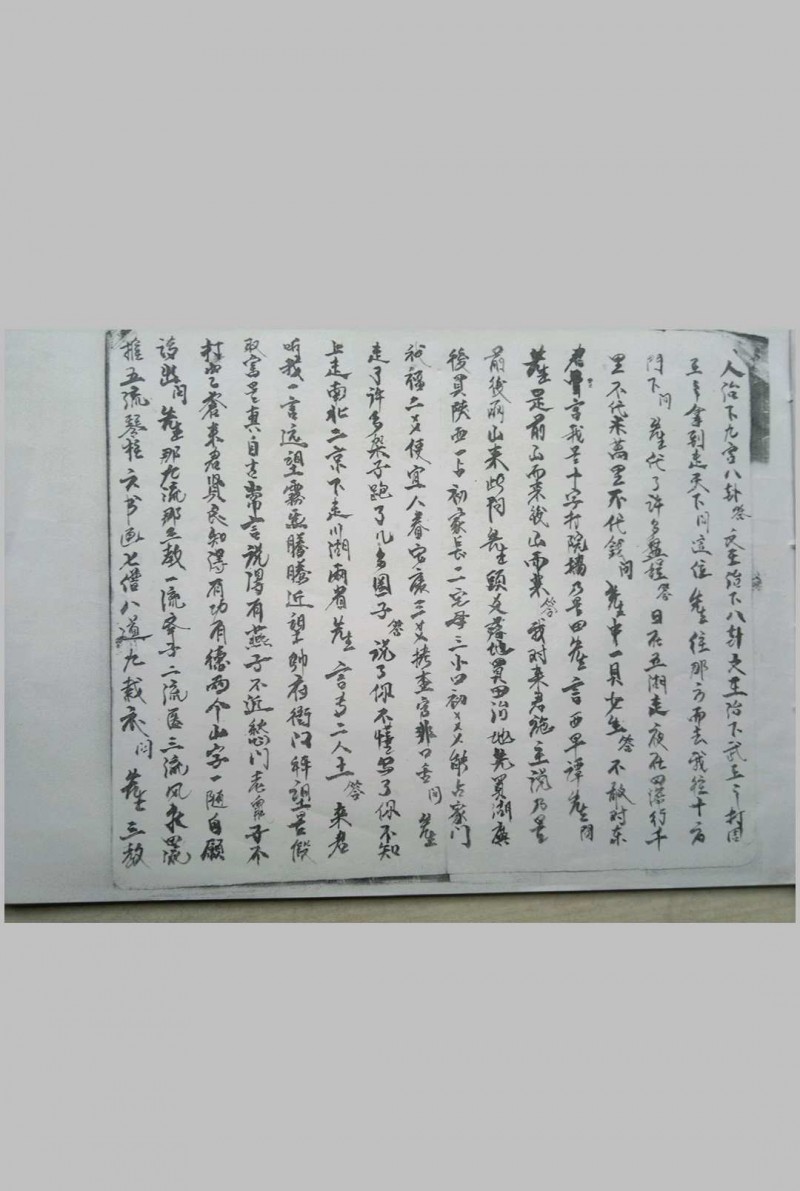 人治下九宫八卦答文王治下八卦文王治下武王之打国
王之拿到走天下问这位先生往那方而去我往十方
门下问先生代了许多盘程答日在五湖走夜在四海行千
里不代米万里不代钱问先生中一貝女生答不敢对东
君言我是十字打院墙乃是田先生言西早谭先生问
先生是前山而来後山而来答我对来君施主说乃是
前後两山来此问先生头爻落地買田治地先買湖广
後買陕西一占初家长二宅母三小口初之爻能占家门
祝福二爻便宜人眷安康三爻查官非口舌问先生
走了许多梁子跑了几多圈子答说了你不懂写了你不知
上走南北二京下走川湖两省先生言高二人士答来君
听我一言远望雾气腾腾近望帅府衙门祥望是假
取写是真自古常言说得有燕子不近愁门老鼠子不
打空仓来君贤良知得有功有德两个山字一随自願
请出问先生那九流那三教一流举子二流医三流风水四流
推五流琴棋六书画七僧八道九裁衣问先生三教